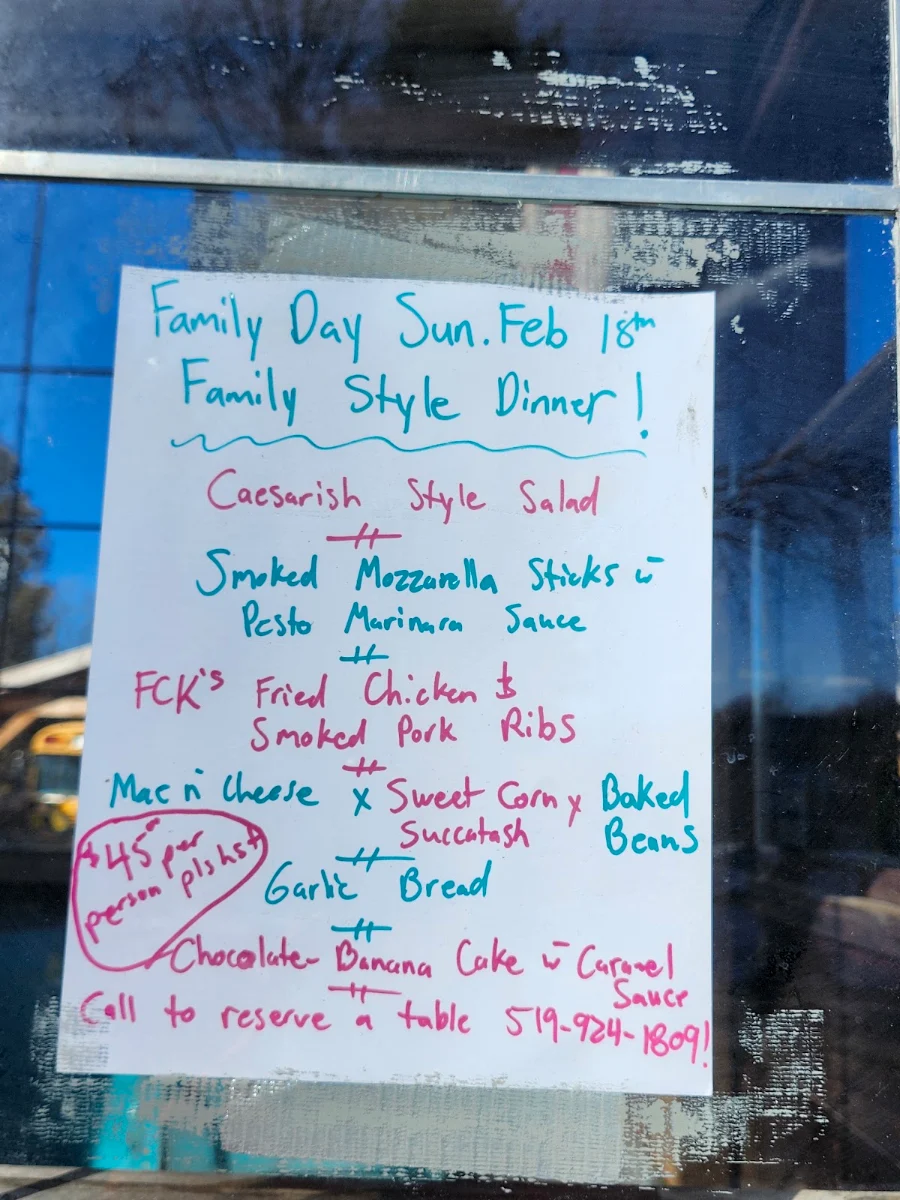 Family Day Sun. Feb 18th
Family Style Dinner!
Caesarish Style Salad
Smoked Mozzarella Sticks w
Pesto Marinara Sauce
FCK's Fried Chicken &
Smoked Pork Ribs
Mac n' Cheese x Sweet Corn x Baked
Succatash Beans
$45 per
person pls hst
Garlic Bread
Chocolate-Banana Cake w Caramel
Sauce
Call to reserve a table 519-924-1809!